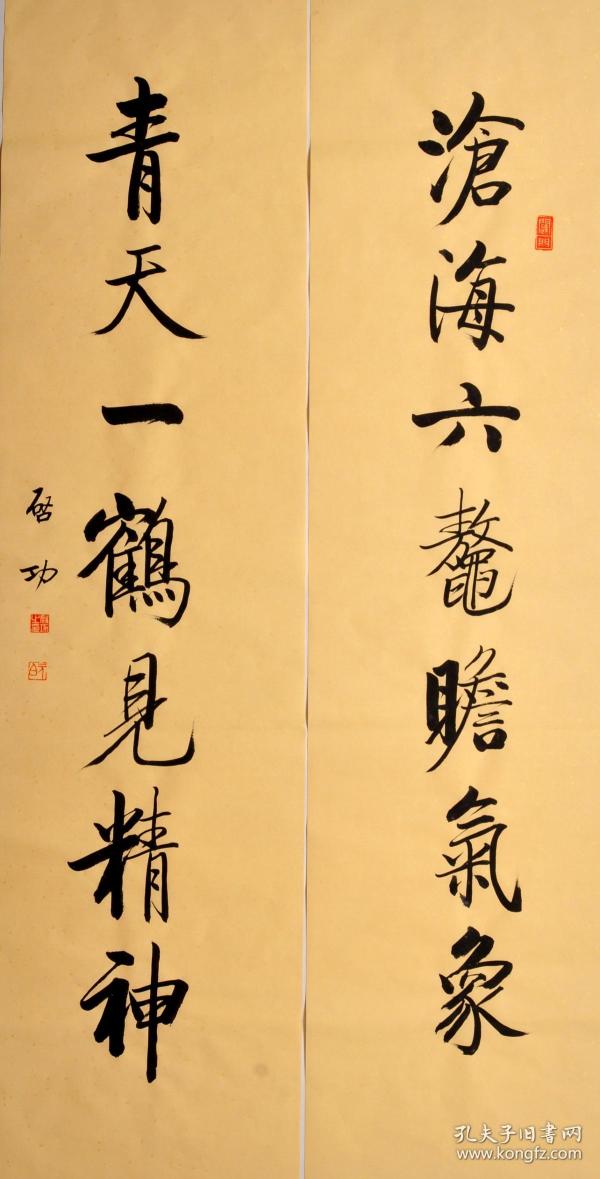 滄海六鼇瞻氣象
青天一鶴見精神
啓功
孔夫子旧書网
www.kongfz.com